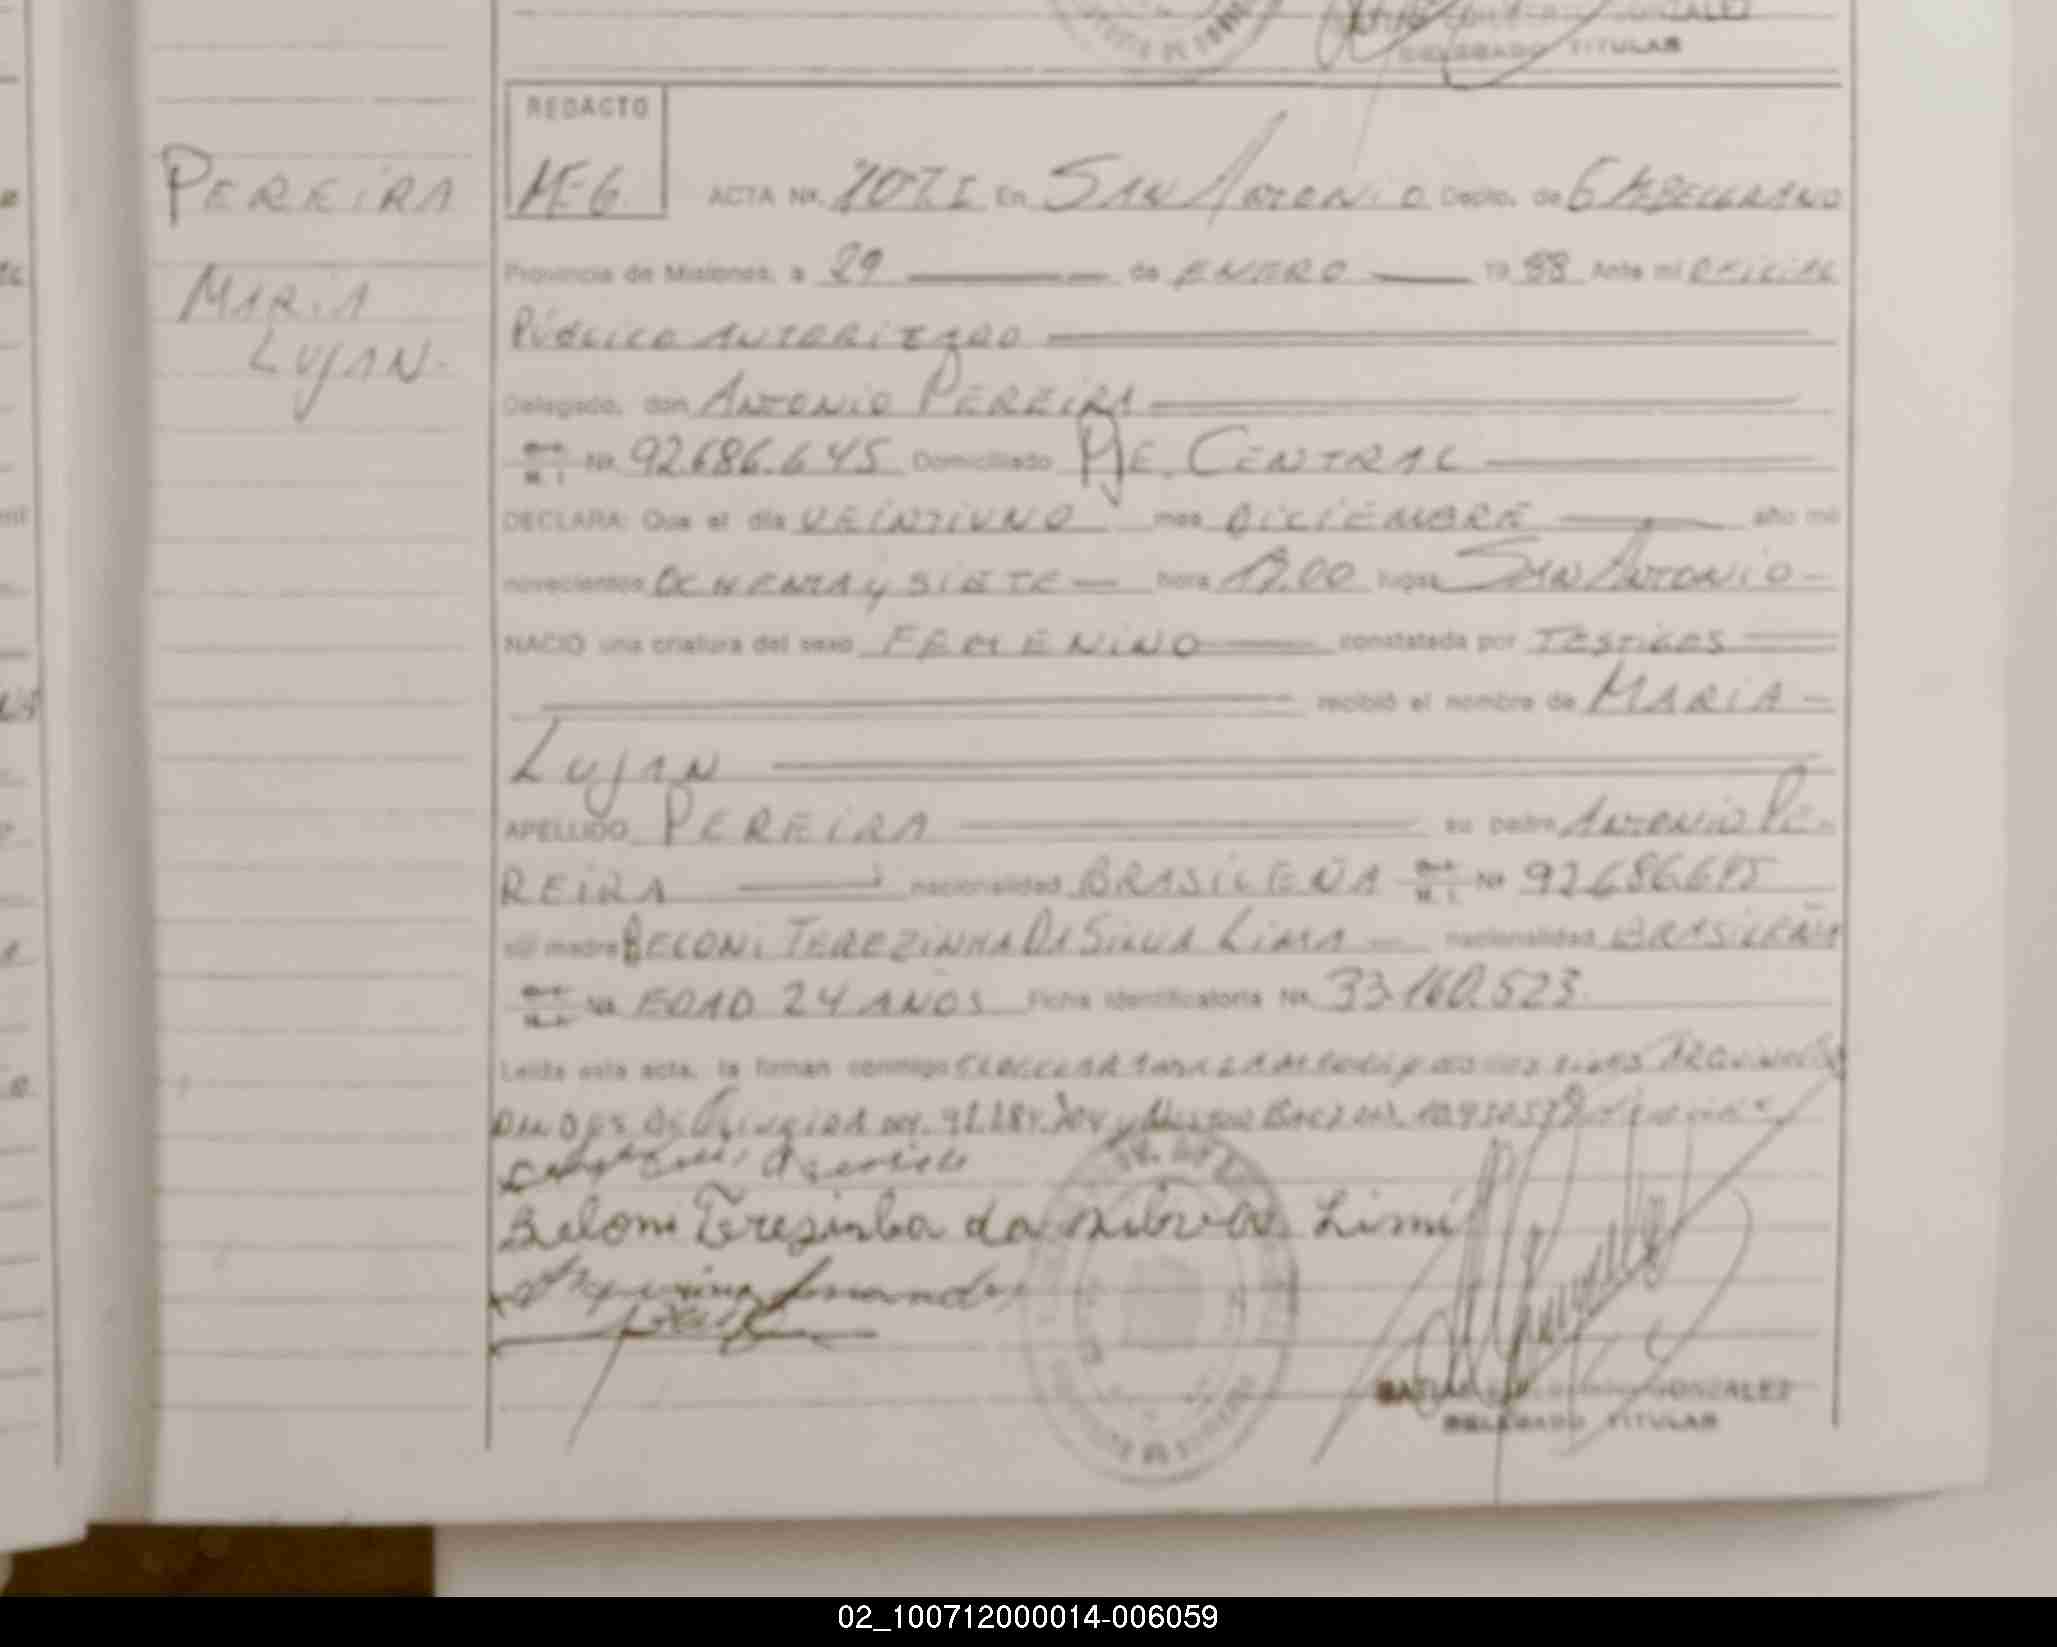 GONZALEZ
DELEGADO TITULAR
REDACTO
PEREIRA
ACTA Nº. En SAN ANTONIO Depto. de G M BELGRANO
Provincia de Misiones, a 29 de ENERO 19 88 Ante mi OFICIAL
MARIA
PÚBLICO AUTORIZADO
LUJAN.
Delegado, don ANTONIO PEREIRA
M. I. Nº 92.686.645 Domiciliado PJE. CENTRAL
DECLARA: Que el día VEINTIUNO mes DICIEMBRE año mil
novecientos OCHENTA y SIETE hora lugar SAN ANTONIO
NACIO una criatura del sexo FEMENINO constatada por TESTIGOS
recibió el nombre de MARIA
LUJAN
APELLIDO PEREIRA su padre ANTONIO PE-
REIRA nacionalidad BRASILEÑA M. I. Nº 92.686.645
su madre BELONI TEREZINHA DA SILVA LIMA nacionalidad BRASILEÑA
Nº EDAD 24 AÑOS Ficha Identificatoria Nº 33.160.523
Leída esta acta, la firman conmigo
Beloni Terezinha da silva Lima
GONZALEZ
DELEGADO TITULAR
02_100712000014-006059